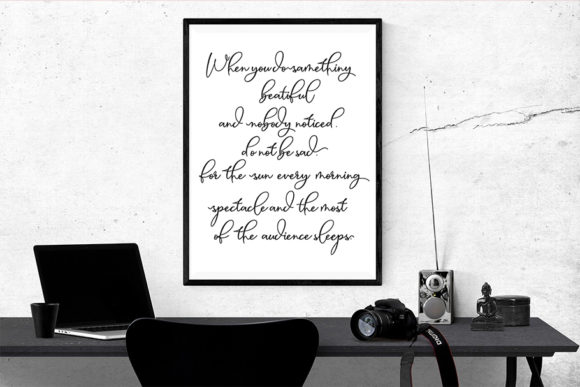 When you do something
beatiful
and nobody noticed.
do not be sad.
for the sun every morning
spectacle and the most
of the audience sleeps